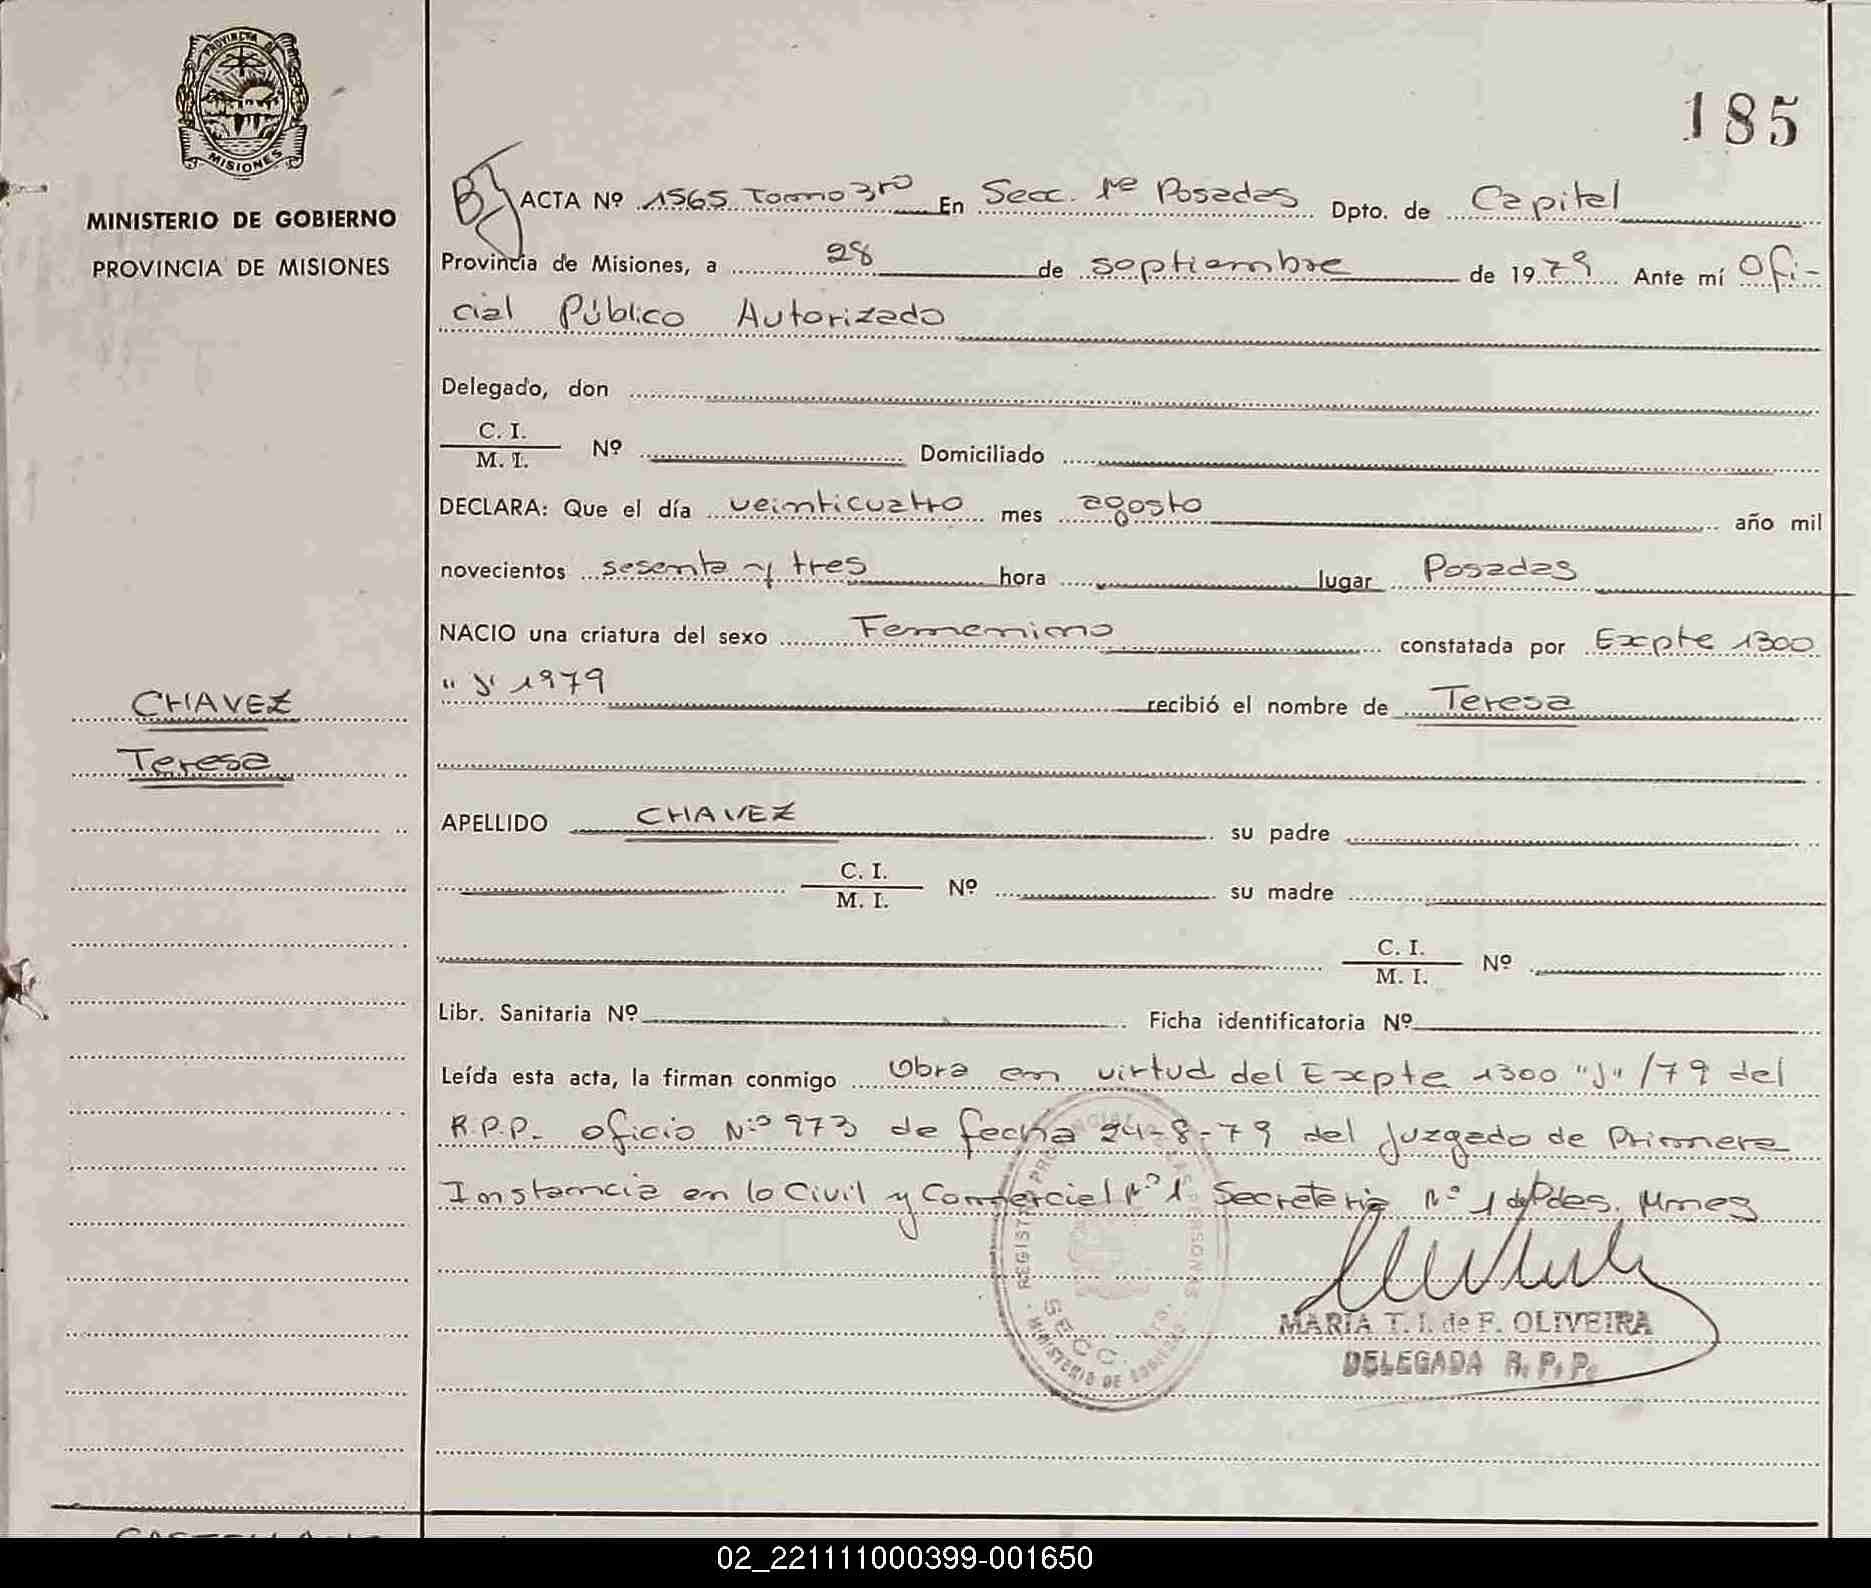 PROVINCIA DE
MISIONES
MINISTERIO DE GOBIERNO
PROVINCIA DE MISIONES
CHAVEZ
Teresa
185
ACTA Nº 1565 Tomo 3ro En Secc. 1ra Posadas Dpto. de Capital
Provincia de Misiones, a 28 de septiembre de 1979 Ante mí Ofi-
cial Público Autorizado
Delegado, don
C. I.
M. I. Nº Domiciliado
DECLARA: Que el día veinticuatro mes agosto año mil
novecientos sesenta y tres hora lugar Posadas
NACIO una criatura del sexo Femenino constatada por Excpte 1300
"J" 1979 recibió el nombre de Teresa
APELLIDO CHAVEZ su padre
C. I.
M. I. Nº su madre
C. I.
M. I. Nº
Libr. Sanitaria Nº Ficha identificatoria Nº
Leída esta acta, la firman conmigo Obra en virtud del Excpte 1300 "J" /79 del
R.P.P. oficio Nº 973 de fecha 24-8-79 del Juzgado de Primera
Instancia en lo Civil y Comercial Nº 1 Secretaria Nº 1 de Pdas. Mnes
SECC.
MINISTERIO DE GOBIERNO
MARIA T. I. de F. OLIVEIRA
DELEGADA R. P. P.
02_221111000399-001650